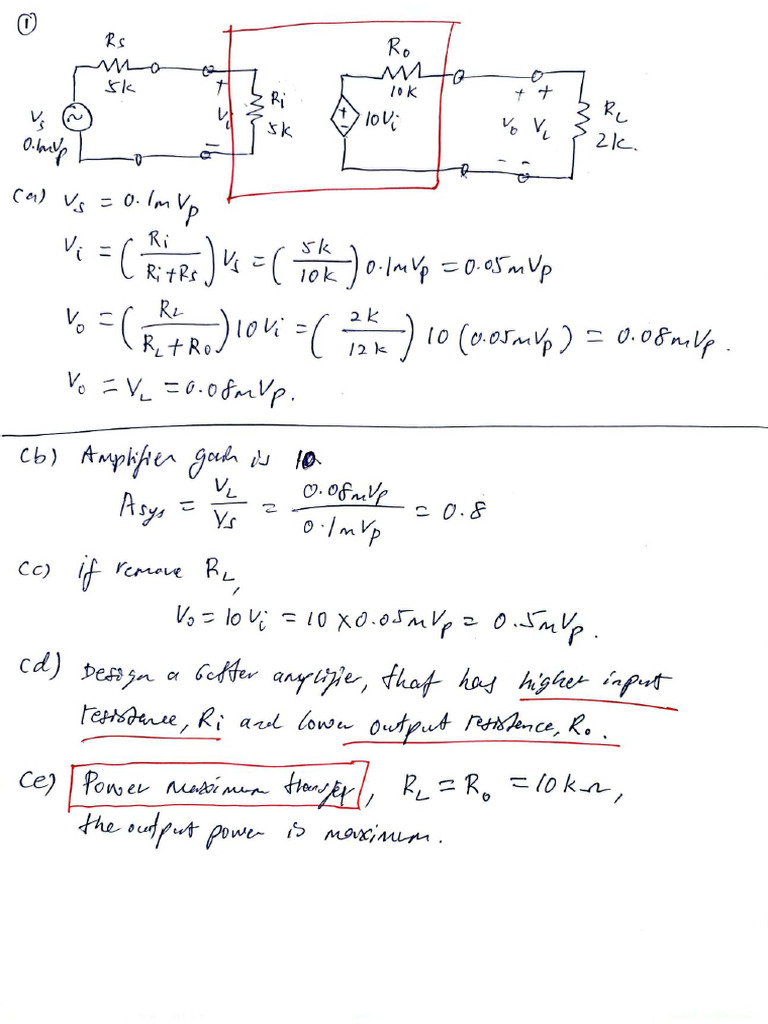 ①
Rs
5k
Vs
0.1mVp
+
Vi
-
Ri
5k
+
-
10Vi
Ro
10k
+ +
Vo VL
- -
RL
2k.
(a) Vs = 0.1mVp
Vi = (Ri / Ri+Rs) Vs = (5k / 10k) 0.1mVp = 0.05mVp
Vo = (RL / RL+Ro) 10Vi = (2k / 12k) 10 (0.05mVp) = 0.08mVp.
Vo = VL = 0.08mVp.
(b) Amplifier gain is 10
Asys = VL / Vs = 0.08mVp / 0.1mVp = 0.8
(c) if remove RL,
Vo = 10Vi = 10 x 0.05mVp = 0.5mVp.
(d) Design a better amplifier, that has higher input
resistence, Ri and lower output resistence, Ro.
(e) Power maximum transfer, RL = Ro = 10kΩ,
the output power is maximum.